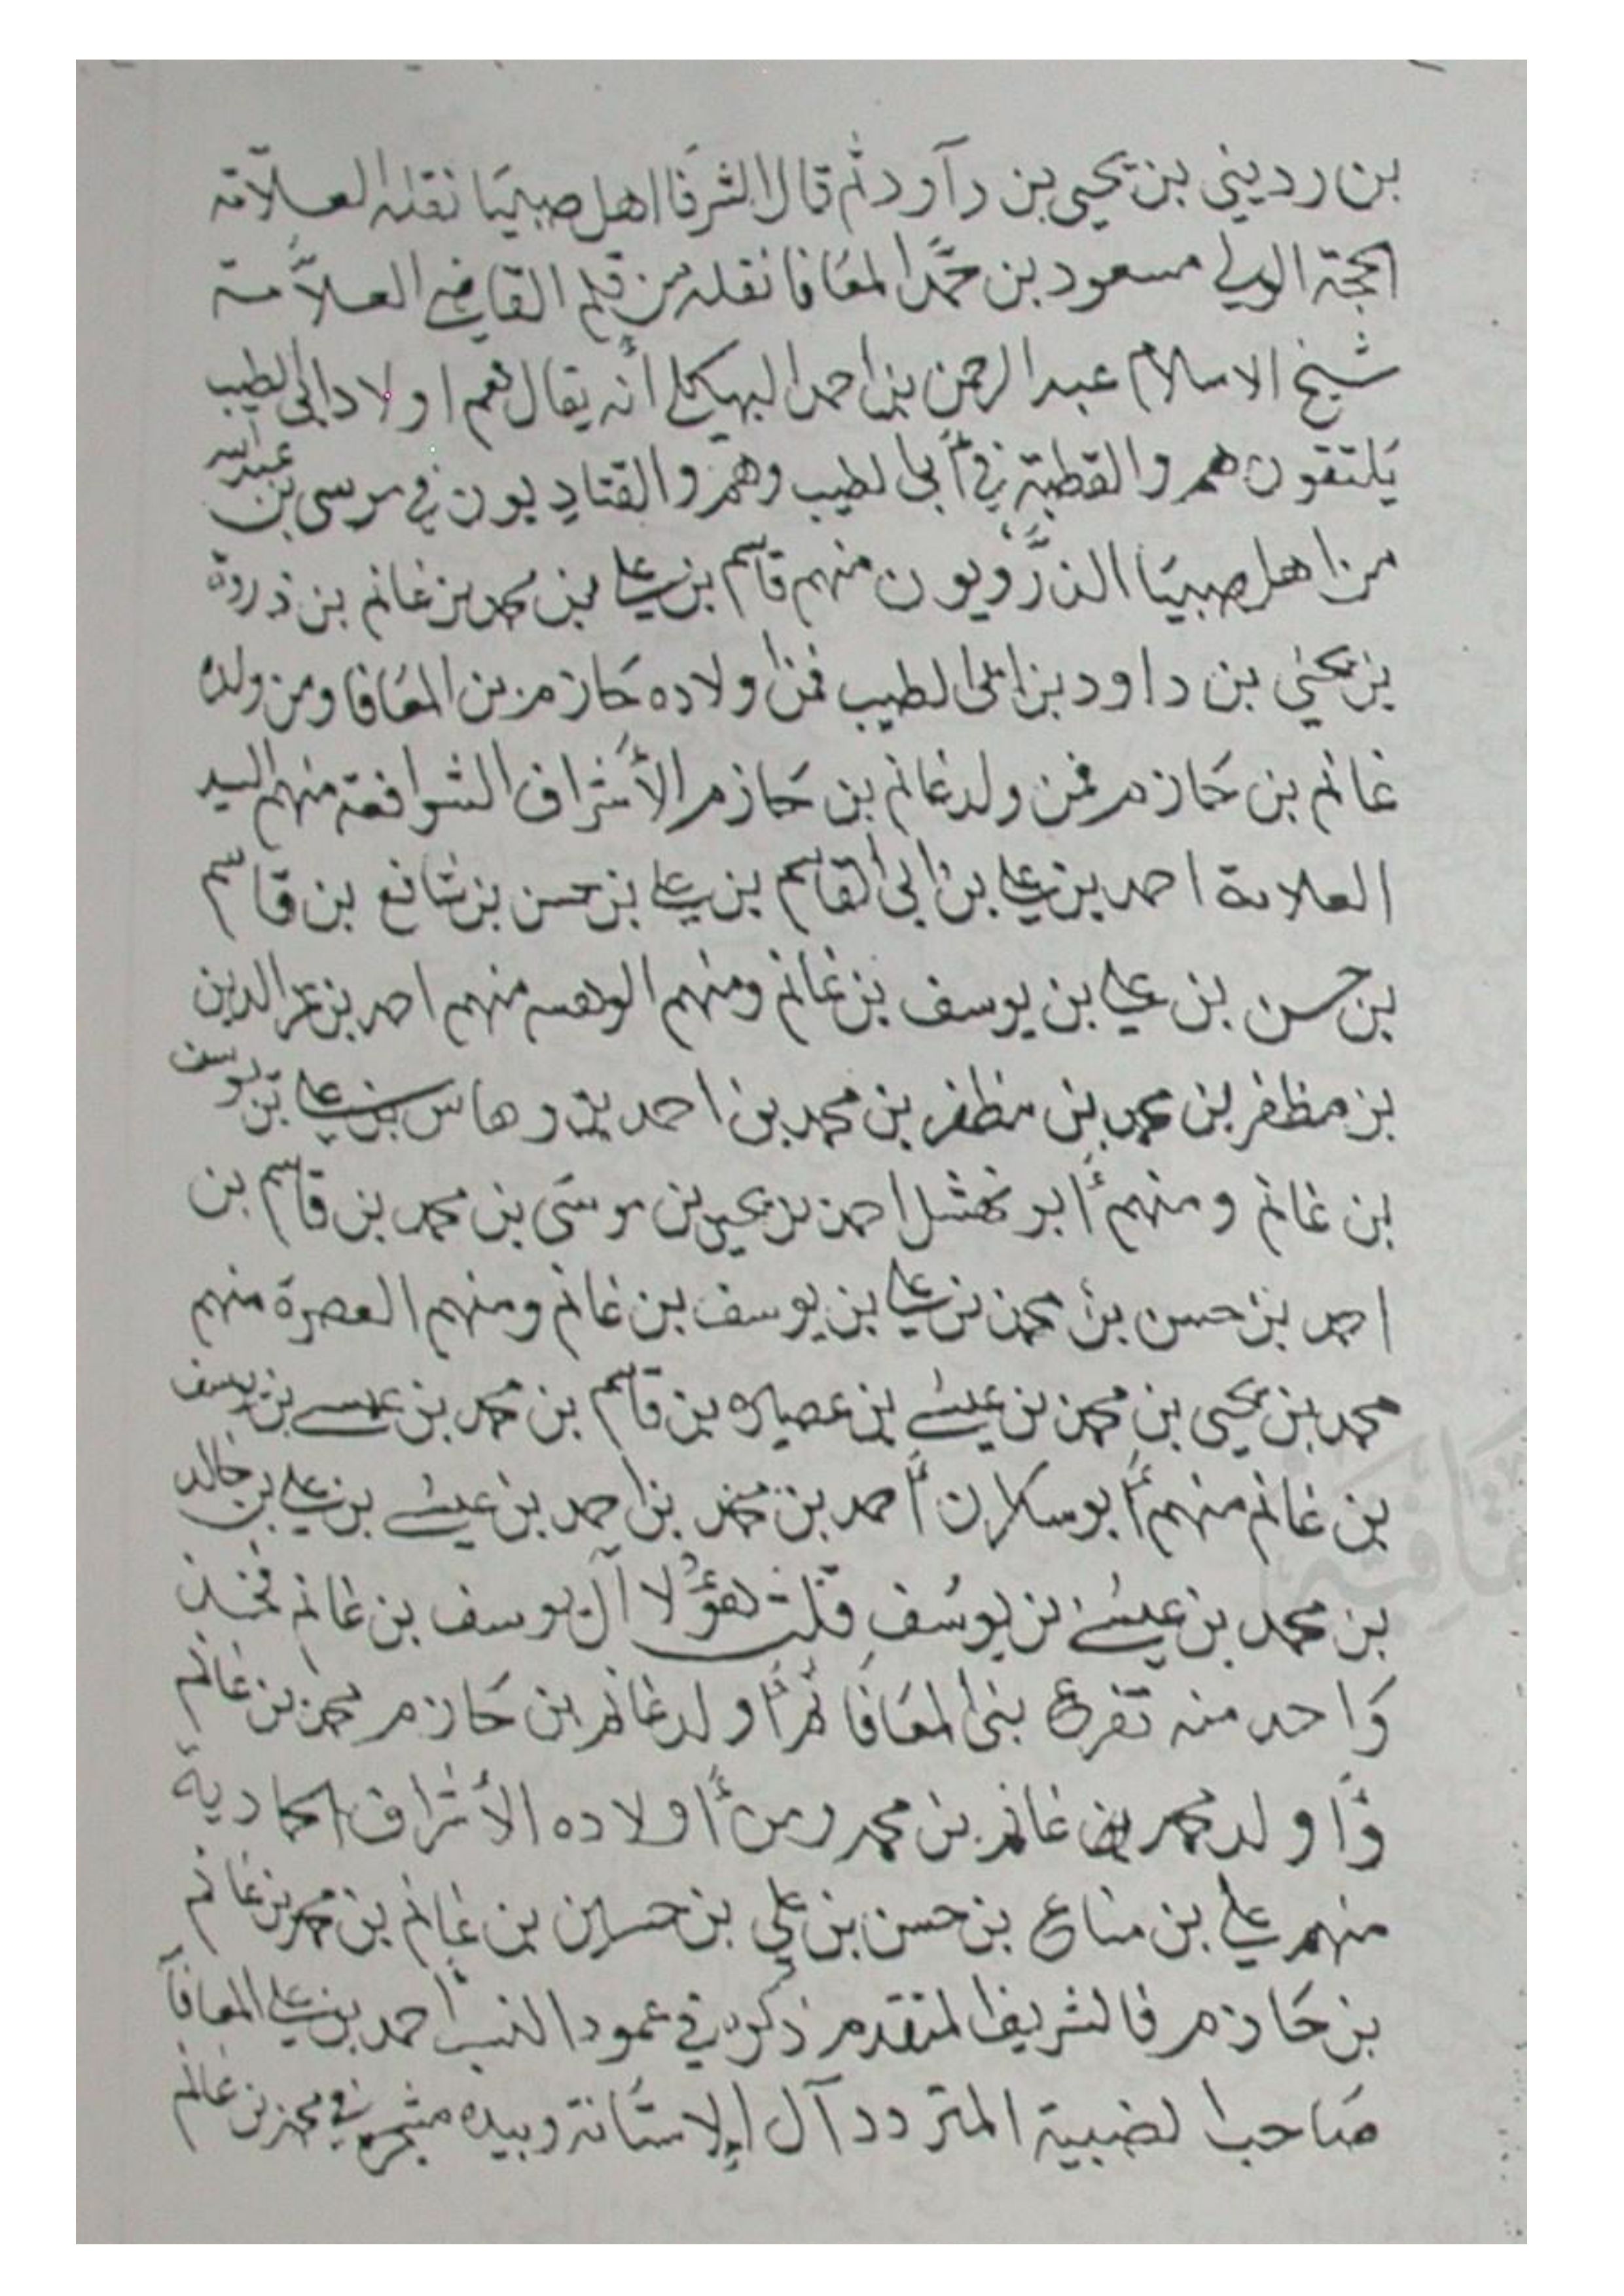 بن رديني بن يحيى بن داود ثم قال الشرفا اهل صبيا نقله العلامة
الحجة الولي مسعود بن محمد المعافا نقله من قلم القاضي العلامة
شيخ الاسلام عبد الرحمن بن احمد البهكلي أنه يقال لهم اولاد ابي الطيب
يلتقون هم والقطبة في أبي لطيب وهم والقتاديون في موسى بن عبد الله
من اهل صبيا الذرويون منهم قاسم بن علي بن محمد بن غانم بن ذروة
بن يحيى بن داود بن ابي الطيب فمن اولاده حازم بن المعافا ومن ولده
غانم بن حازم فمن ولد غانم بن حازم الأشراف الشوافعة منهم السيد
العلامة احمد بن علي بن ابي القاسم بن علي بن حسن بن شافع بن قاسم
بن حسن بن علي بن يوسف بن غانم ومنهم منهم احمد بن عز الدين
بن مظفر بن محمد بن مظفر بن محمد بن احمد بن وهاس بن علي بن يوسف
بن غانم ومنهم أبو نمشل احمد بن يحيى بن موسى بن محمد بن قاسم بن
احمد بن حسن بن محمد بن علي بن يوسف بن غانم ومنهم العصرة منهم
محمد بن يحيى بن محمد بن عيسى بن عصياره بن قاسم بن محمد بن عيسى بن يوسف
بن غانم منهم أبو سكران أحمد بن محمد بن احمد بن عيسى بن علي بن خالد
بن محمد بن عيسى بن يوسف قلت هؤلا آل يوسف بن غانم فخذ
واحد منه تفرع بني المعافا ثم أولد غانم بن حازم محمد بن غانم
وأولد محمد بن غانم بن محمد ومن أولاده الأشراف الحمادية
منهم علي بن مناع بن حسن بن علي بن حسين بن غانم بن محمد بن غانم
بن حازم فالشريف المتقدم ذكره في عمود النسب احمد بن علي المعافا
صاحب الضبية المتردد آل الإستانة وبيده مشجر في محمد بن غانم